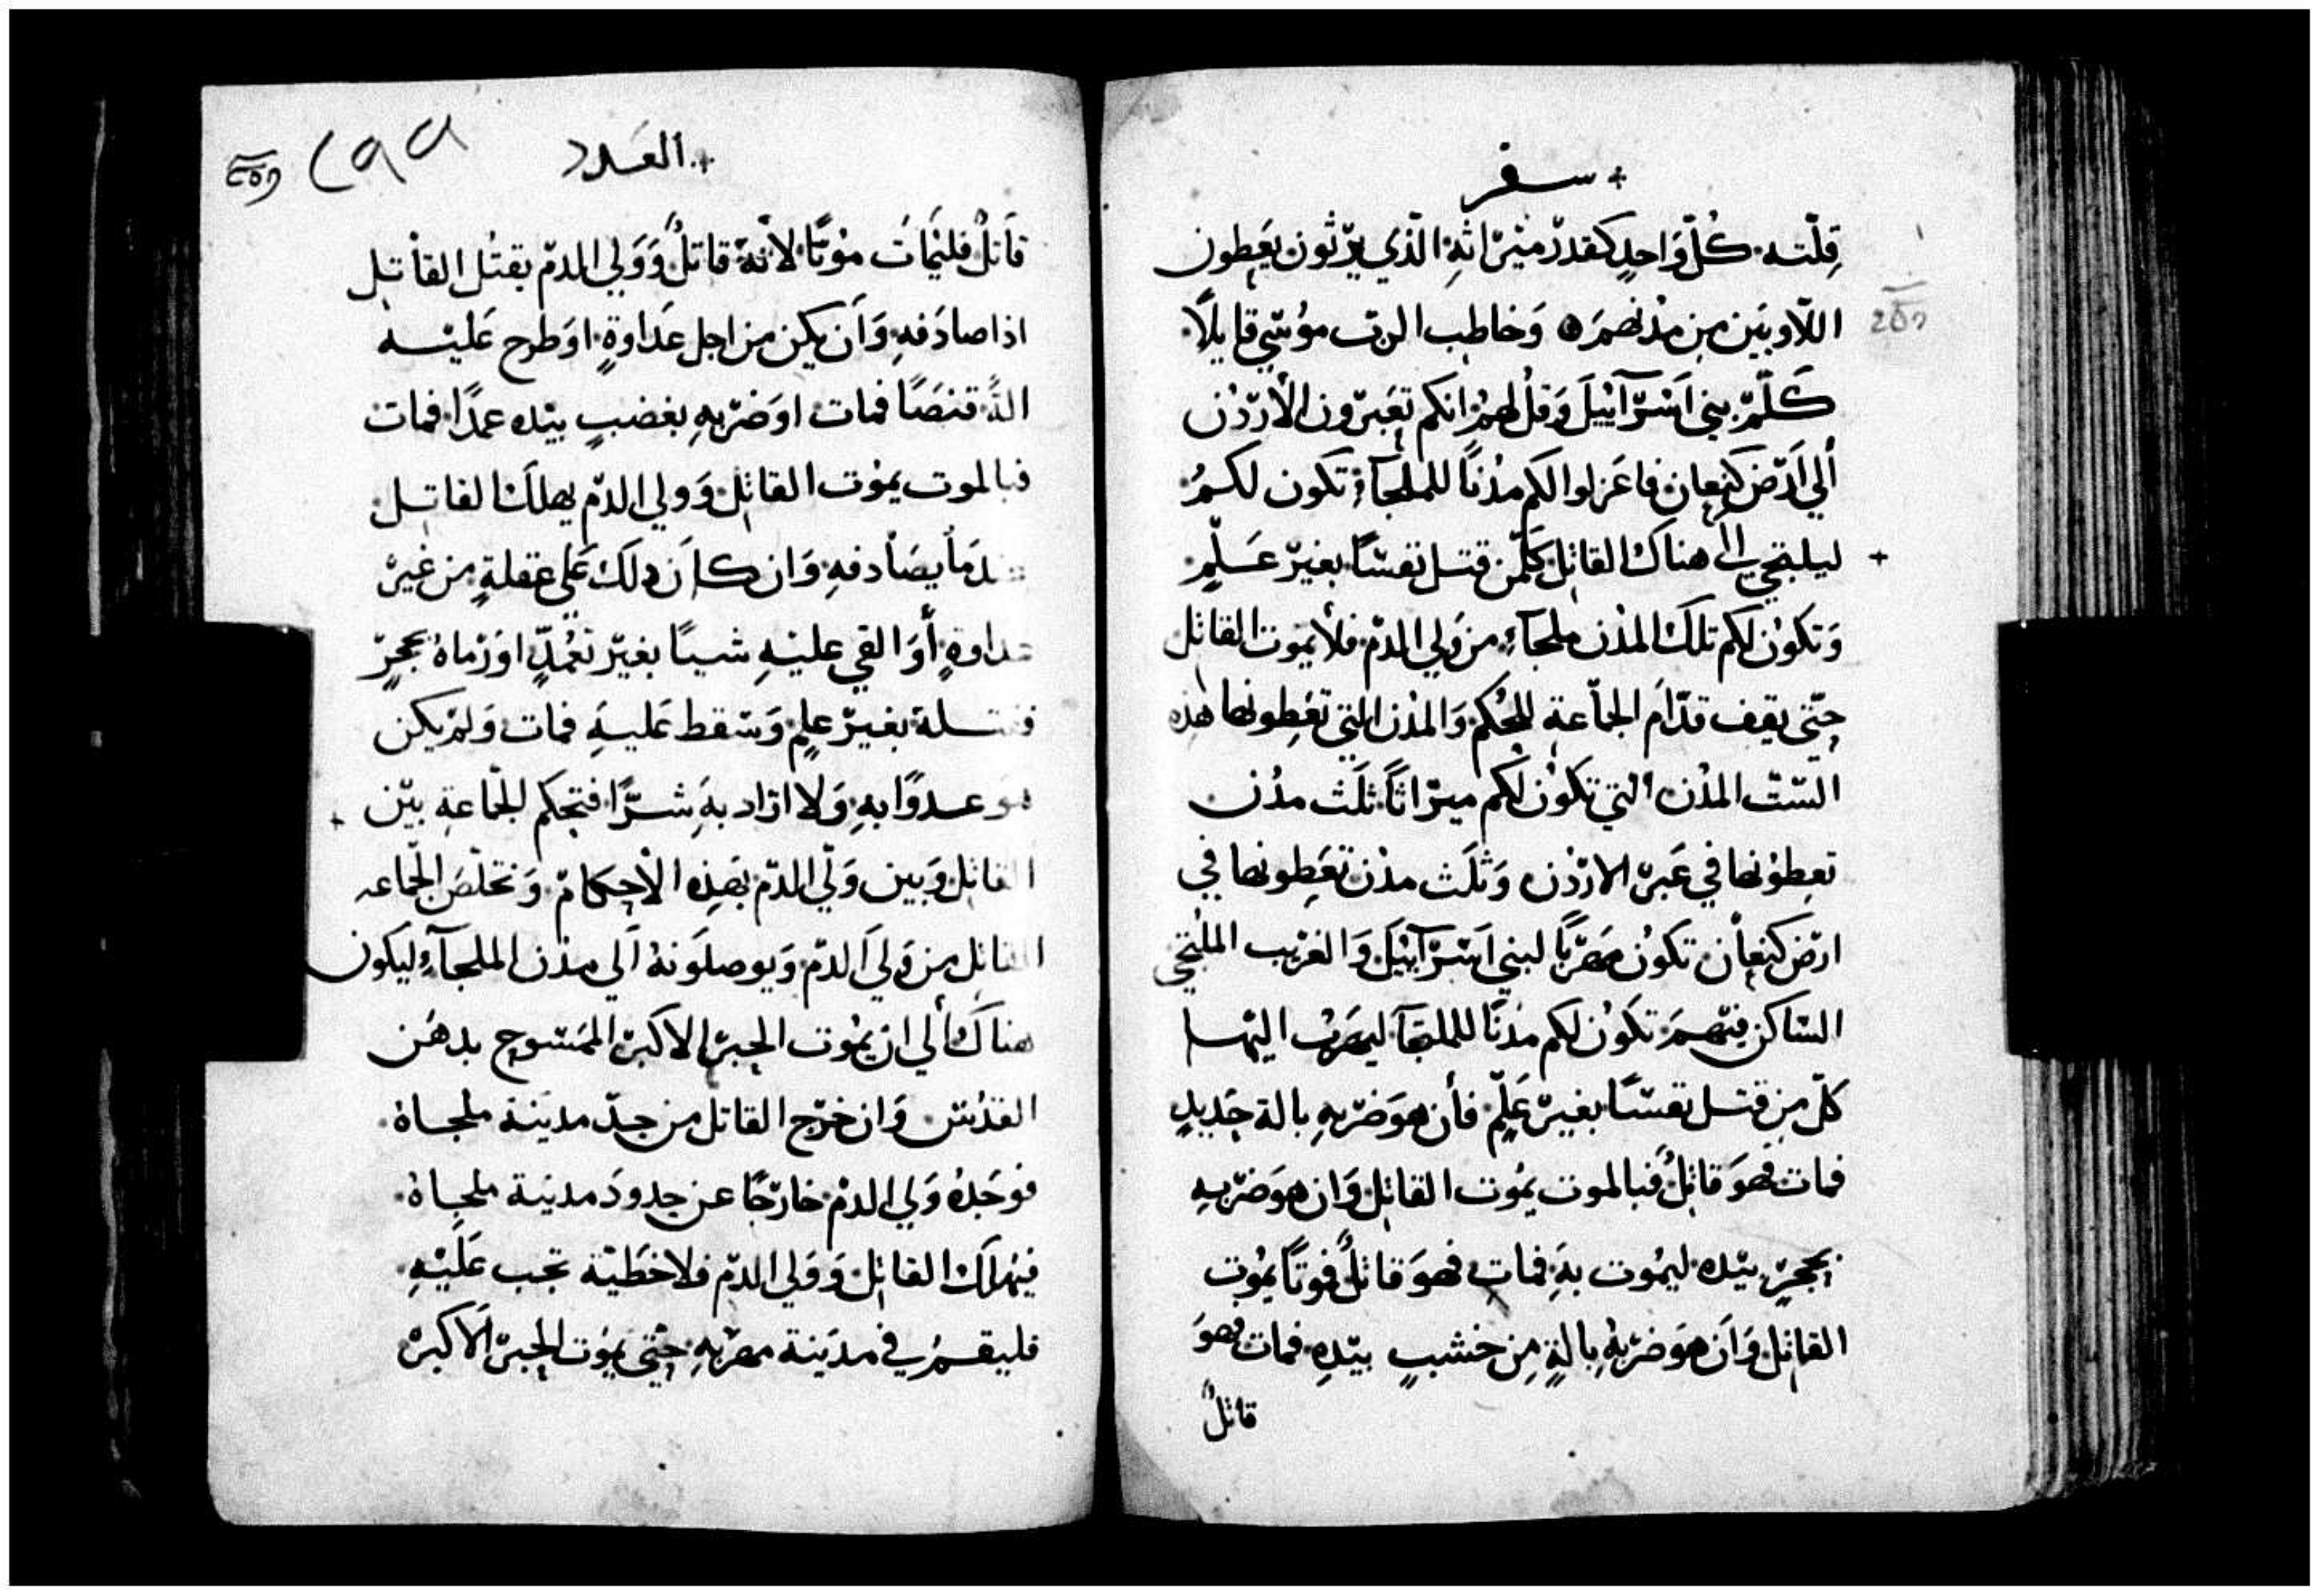 + سفر
قِلّته كُلّ وَاحدٍ كقدر ميْراثهِ الّذي يرْثون يعَطون
اللّاويَين مِن مدُنهمَره وَخاطب الربّ موُسَي قايلاً
كَلّمْ بني اَسْرآئيلَ وَقلُ لهمُ انكم تعَبرّون الأردُن
ألي اَرْض كنعان فاعَزلوا لكم مدُناً للملجآءِ تكون لكمُ
+ ليلتجي إلى هناك القاتل كلّمن قتل نفسًا بغيرْ عَلْمٍ
وَتكوُن لكم تلكَ المدُن ملجآءٍ من وَلي الدّم فلا يموُت القاتل
حتّي يقف قدّام الجمّاعة للحُكم وَالمدُن التي تعَطونها هَذه
السّتّ المدُن التي تكوُن لكم ميرْاثاً ثلَث مدُن
تعطوُنها في عَبرْ الاردُن وَثلَث مدُن تعَطونها في
ارْض كنعاْن تكوُن مهرْباً لبني اَسْرآئيْل وَالغرْيب الملُتجي
السّاكن فيهمَ تكوُن لكم مدُنًا للملجآ ليهربُ اليْها
كلّ مِن قتل نفسًا بغيرْ عَلمٍ فأن هوَ ضرْبهِ بالة حَديدٍ
فمات فهوَ قاتلٌ فبالموت يموُت القاتل وَان هوَ ضرْبهِ
بحجرٍ بيدْه ليموُت بهَِ فمات فهوَ قاتلٌ فموتًا يموُت
القاتل وَاَن هوَ ضرْبهُ بالةٍ مِن خشبٍ بيدْهِ فمات فهوَ
قاتلٌ
+ العَدد
٢٩٩
قاَتلٌ فليُماتَ موُتاً لأنهَ قاتلٌ وَوَلي الدمّ يقتُل القاْتل
اذا صادَفهِ وَاَن يكن من اجل عَداوةٍ اوَطرح عَليْه
الةً قنصًَا فمات اوَضرْبهِ بغضبٍ بيدْه عمدًا فمات
فبالموت يموْت القاتل وَولي الدّم يهلك القاتل
عندمَا يصَاْدفهِ وَان كاَن ذلكَ عَلي غفلةٍ من غيرْ
عداوةٍ أوَ القي عليْهِ شيًا بغيرْ تعُمدٍّ اوَرْماهُ بحجرٍ
فقتلة بغيرْ علمٍ وَسْقط عَليهَِ فمات وَلمْ يكن
هوَ عدوًا بهِ وَلا ارْاد بهَِ شرًّا فتحكم الجمّاعةِ بيّن
القاتل وَبين وَلّي الدّم بهَذِه الأحكام وَتخلّصَ الجمّاعه
القاتل من وَلي اَلدمّ وَيوصلوَنهُ اَلي مدُن الملجآءِ ليَكون
هناكَ ألي ان يموُت الحبرْ الاكبرْ الممَسْوح بدهَن
القدُس وَان خرْج القاتل من حدّ مديَنة ملجاهُ
فوجَدهُ وَلي الدمْ خارْجًا عن حدودَ مدينة ملجاهُ
فيهْلك القاتل وَوَلي الدّم فلا خَطَيّة تجب عَليْهِ
فليقمُ في مديَنة مهرْبهِ حَتّي يموُت الحبرْ اَلاكبرْ